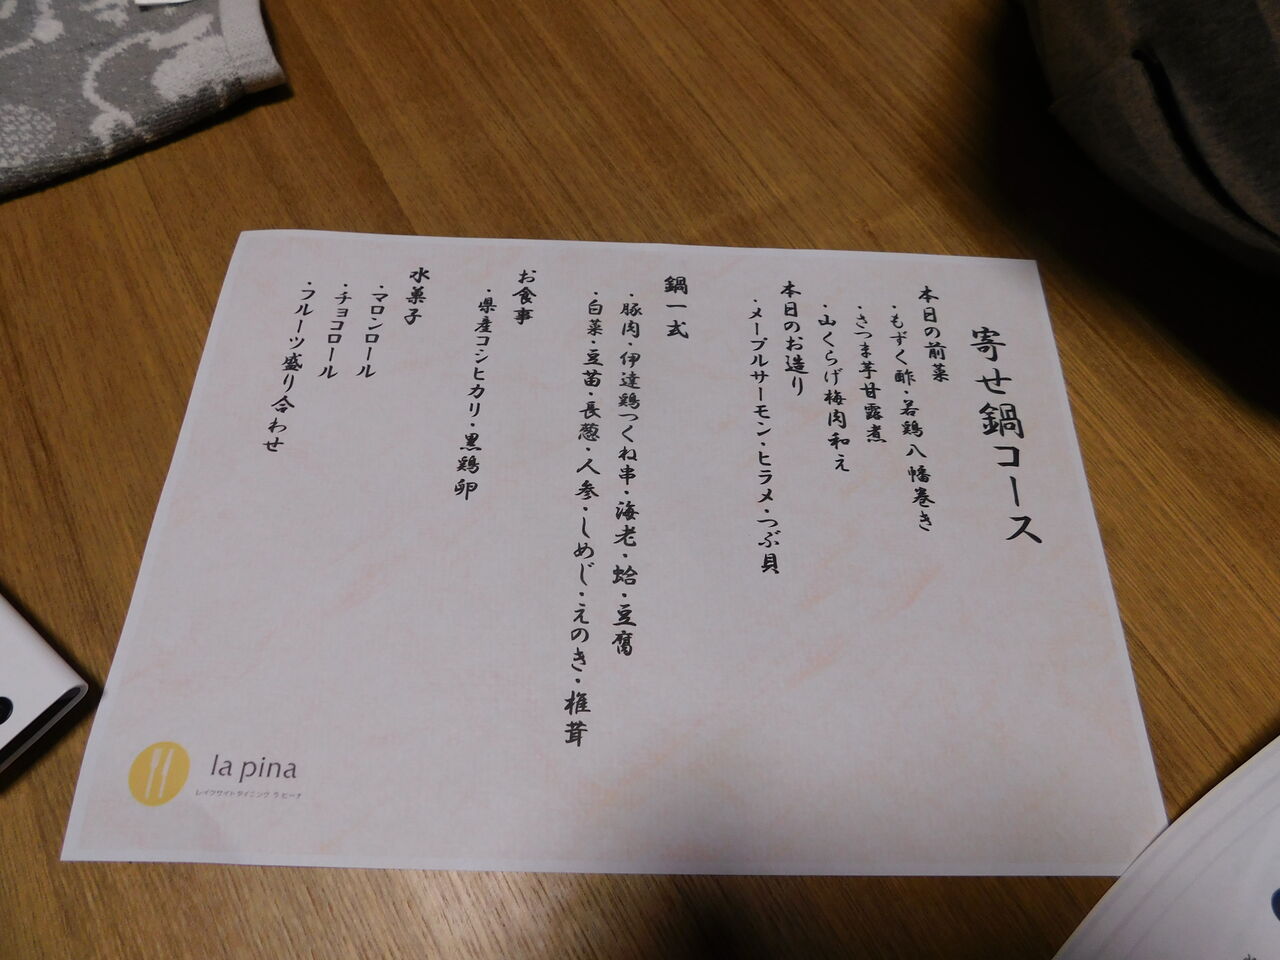 寄せ鍋コース
本日の前菜
・もずく酢・若鶏八幡巻き
・さつま芋甘露煮
・山くらげ梅肉和え
本日のお造り
・メープルサーモン・ヒラメ・つぶ貝
鍋一式
・豚肉・伊達鶏つくね串・海老・蛤・豆腐
・白菜・豆苗・長葱・人参・しめじ・えのき・椎茸
お食事
・県産コシヒカリ・黒鶏卵
水菓子
・マロンロール
・チョコロール
・フルーツ盛り合わせ
la pina
レイクサイトダイニング ラ ピーナ